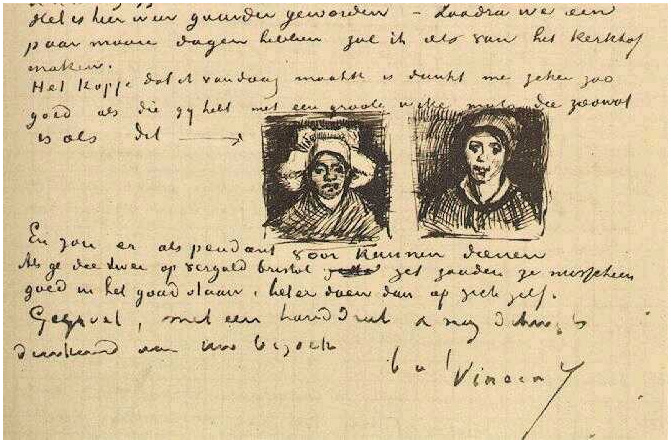 Het is hier weer guurder geworden – Zoodra we een
paar mooie dagen hebben zal ik iets van het kerkhof
maken.
Het kopje dat ik vandaag maakte is dunkt me zeker zoo
goed als die gij hebt met een groote witte muts die zoowat
is als dit
En zou er als pendant voor kunnen dienen
Als ge die twee op verguld bristol zet zouden ze misschien
goed in het goud staan, beter doen dan op zich zelf.
Gegroet, met een handdruk &
dankend voor Uw bezoek
b à t Vincent